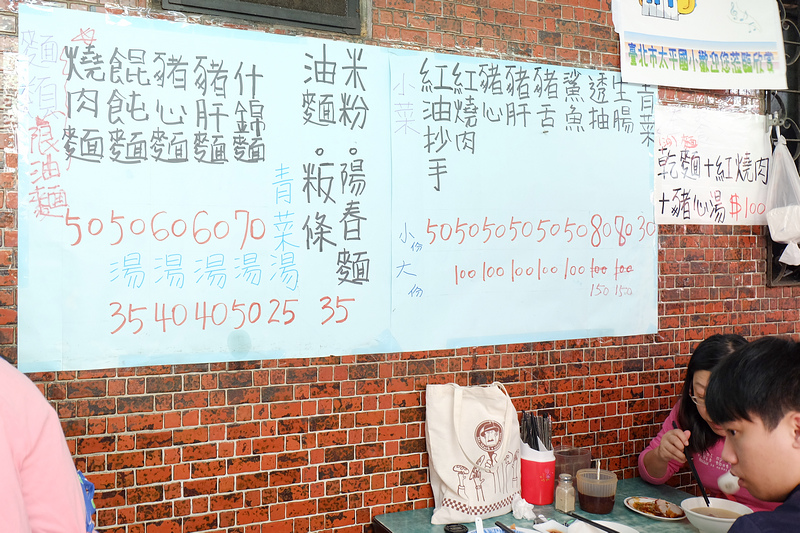 麵類(限油麵)
燒肉麵
餛飩麵
豬心麵
豬肝麵
什錦麵
50 50 60 60 70
湯 湯 湯 湯
35 40 40 50
青菜湯
25
油麵。粄條
米粉。陽春麵
35
小菜
紅油抄手
紅燒肉
豬心
豬肝
豬舌
鯊魚
透抽
生腸
青菜
小份 50 50 50 50 50 50 80 80 30
大份 100 100 100 100 100 100 100
150 150
臺北市太平國小歡迎您蒞臨欣賞
乾麵+紅燒肉
+豬心湯 $100